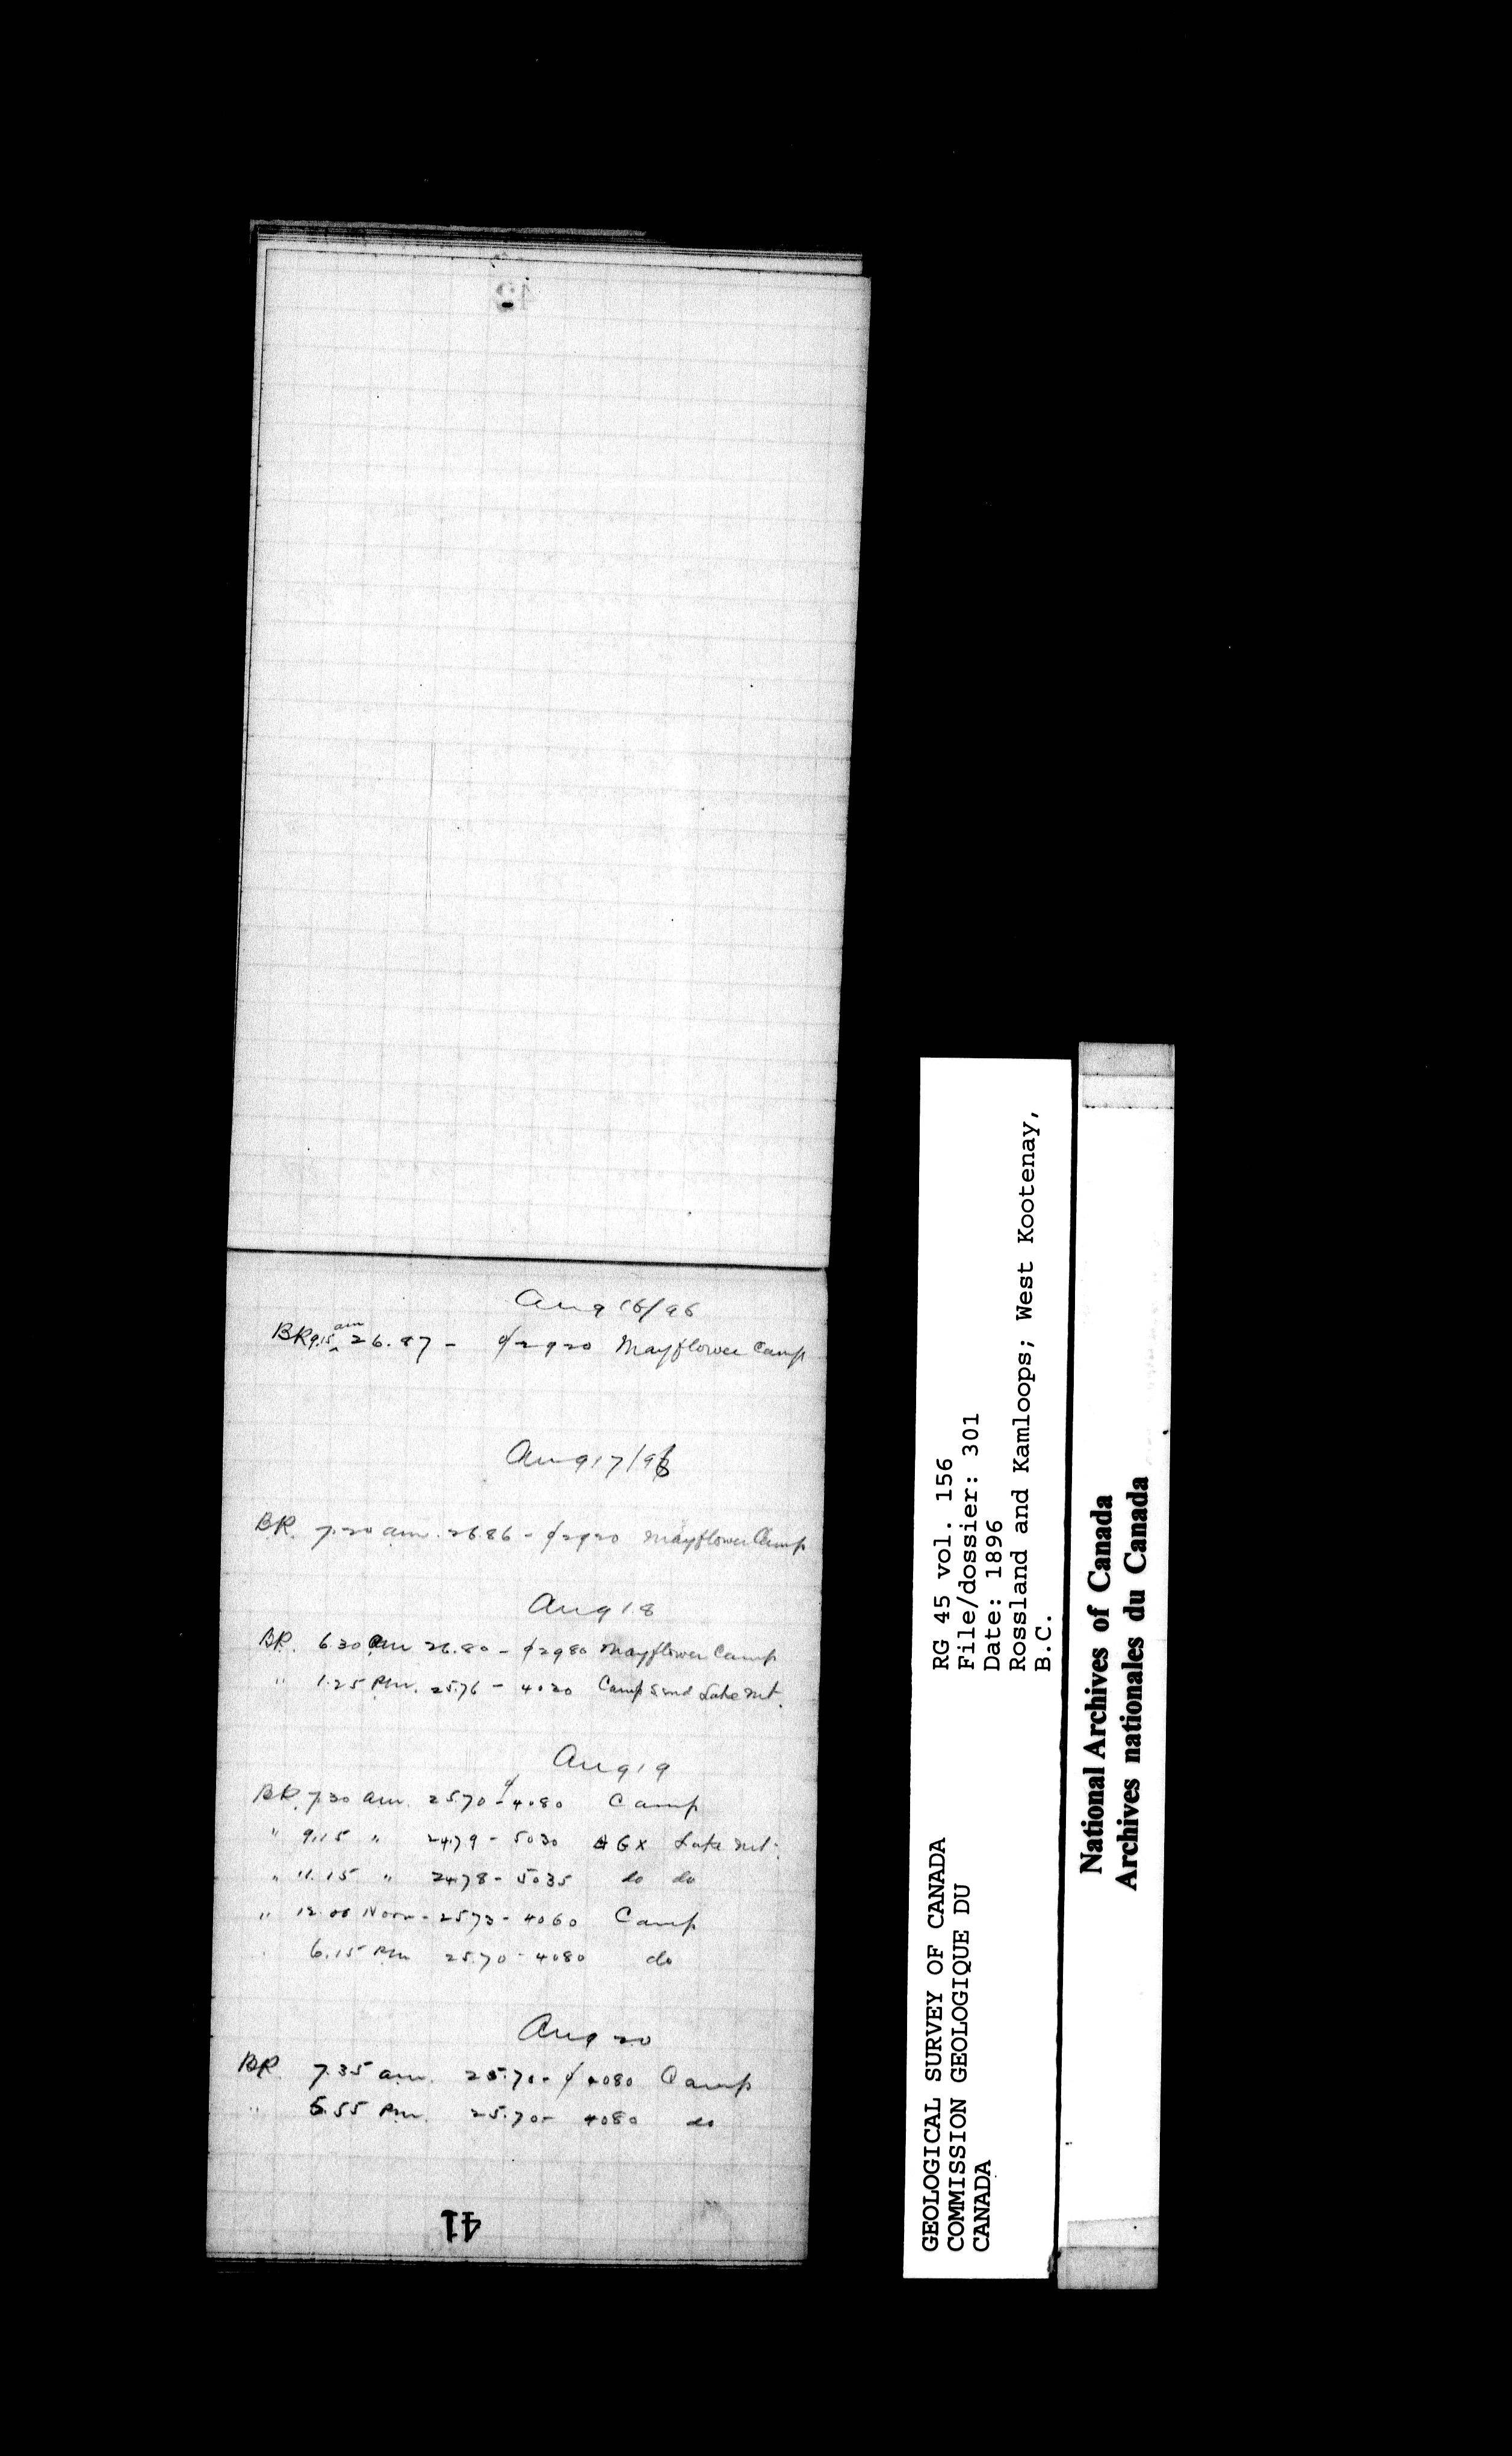 Aug 16/96
BR 9.15 am 26.87 - of 2920 Mayflower Camp
Aug 17/96
BR. 7.20 am. 26.86 - of 2920 Mayflower Camp
Aug 18
BR. 6.30 am 26.80 - of 2980 Mayflower Camp
" 1.25 Pm. 25.76 - 4020 Camp Lake Mt.
Aug 19
BR. 7.30 am. 25.70 - of 4080 Camp
" 9.15 " 24.79 - 5030 AGX Lake Mt.
" 11.15 " 24.78 - 5035 do do
" 12.00 Noon - 25.73 - 4060 Camp
6.15 Pm 25.70 - 4080 do
Aug 20
BR. 7.35 am. 25.70 - of 4080 Camp
" 5.55 Pm. 25.70 - 4080 do
41
GEOLOGICAL SURVEY OF CANADA
COMMISSION GEOLOGIQUE DU
CANADA
RG 45 vol. 156
File/dossier: 301
Date: 1896
Rossland and Kamloops; West Kootenay,
B.C.
National Archives of Canada
Archives nationales du Canada